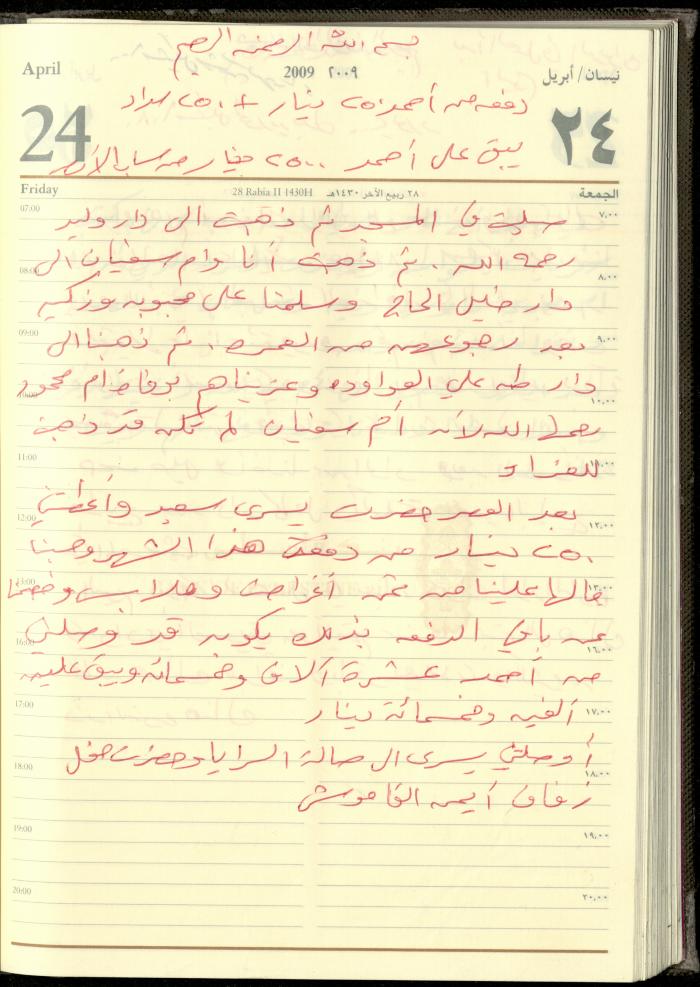 بسم الله الرحمن الرحيم
April 2009 ٢٠٠٩ نيسان/أبريل
دفعه من أحمد ٢٥٠ دينار + ٢٥٠ سداد
24 ٢٤
يبقى على أحمد ٢٥٠٠ دينار من حساب
Friday 28 Rabia II 1430H ٢٨ ربيع الآخر ١٤٣٠هـ الجمعة
07:00 ٧،٠٠
صليت في المسجد ثم ذهبت الى دار وليد
رحمه الله . ثم ذهبت أنا وام سفيان الى
08:00 ٨،٠٠
دار خليل الحاج وسلمنا على محبوبه وزكيه
09:00 ٩،٠٠
بعد رجوعهن من العمره . ثم ذهبنا الى
دار طه علي العواوده وعزيناهم بوفاة ام محمود
10:00 ١٠،٠٠
رحمها الله لأن أم سفيان لم تكن قد ذهبت
11:00 ١١،٠٠
للعزاء
بعد العصر حضرت يسرى سعيد وأعطتني
12:00 ١٢،٠٠
٢٥٠ دينار من دفعة هذا الشهر
13:00 ١٣،٠٠
مالها علينا من ثمن أغراض وملابس
عن باقي الدفعه بذلك يكون قد وصلني
16:00 ١٦،٠٠
من أحمد عشرة آلاف وخمسمائه ويبقى عليه
17:00 ١٧،٠٠
ألفين وخمسمائة دينار
أوصلتني يسرى الى صالة السرايا وحضرت حفل
18:00 ١٨،٠٠
زفاف أيمن
19:00 ١٩،٠٠
20:00 ٢٠،٠٠